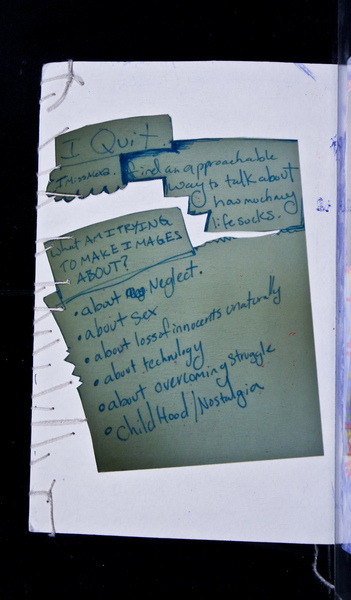 I Quit
find an approachable
way to talk about
how much my
life sucks.
What AM I TRYING
TO MAKE IMAGES
ABOUT?
• about Neglect.
• about Sex
• about loss of innocents unaturally
• about technology
• about overcoming struggle
• Child Hood / Nostalgia